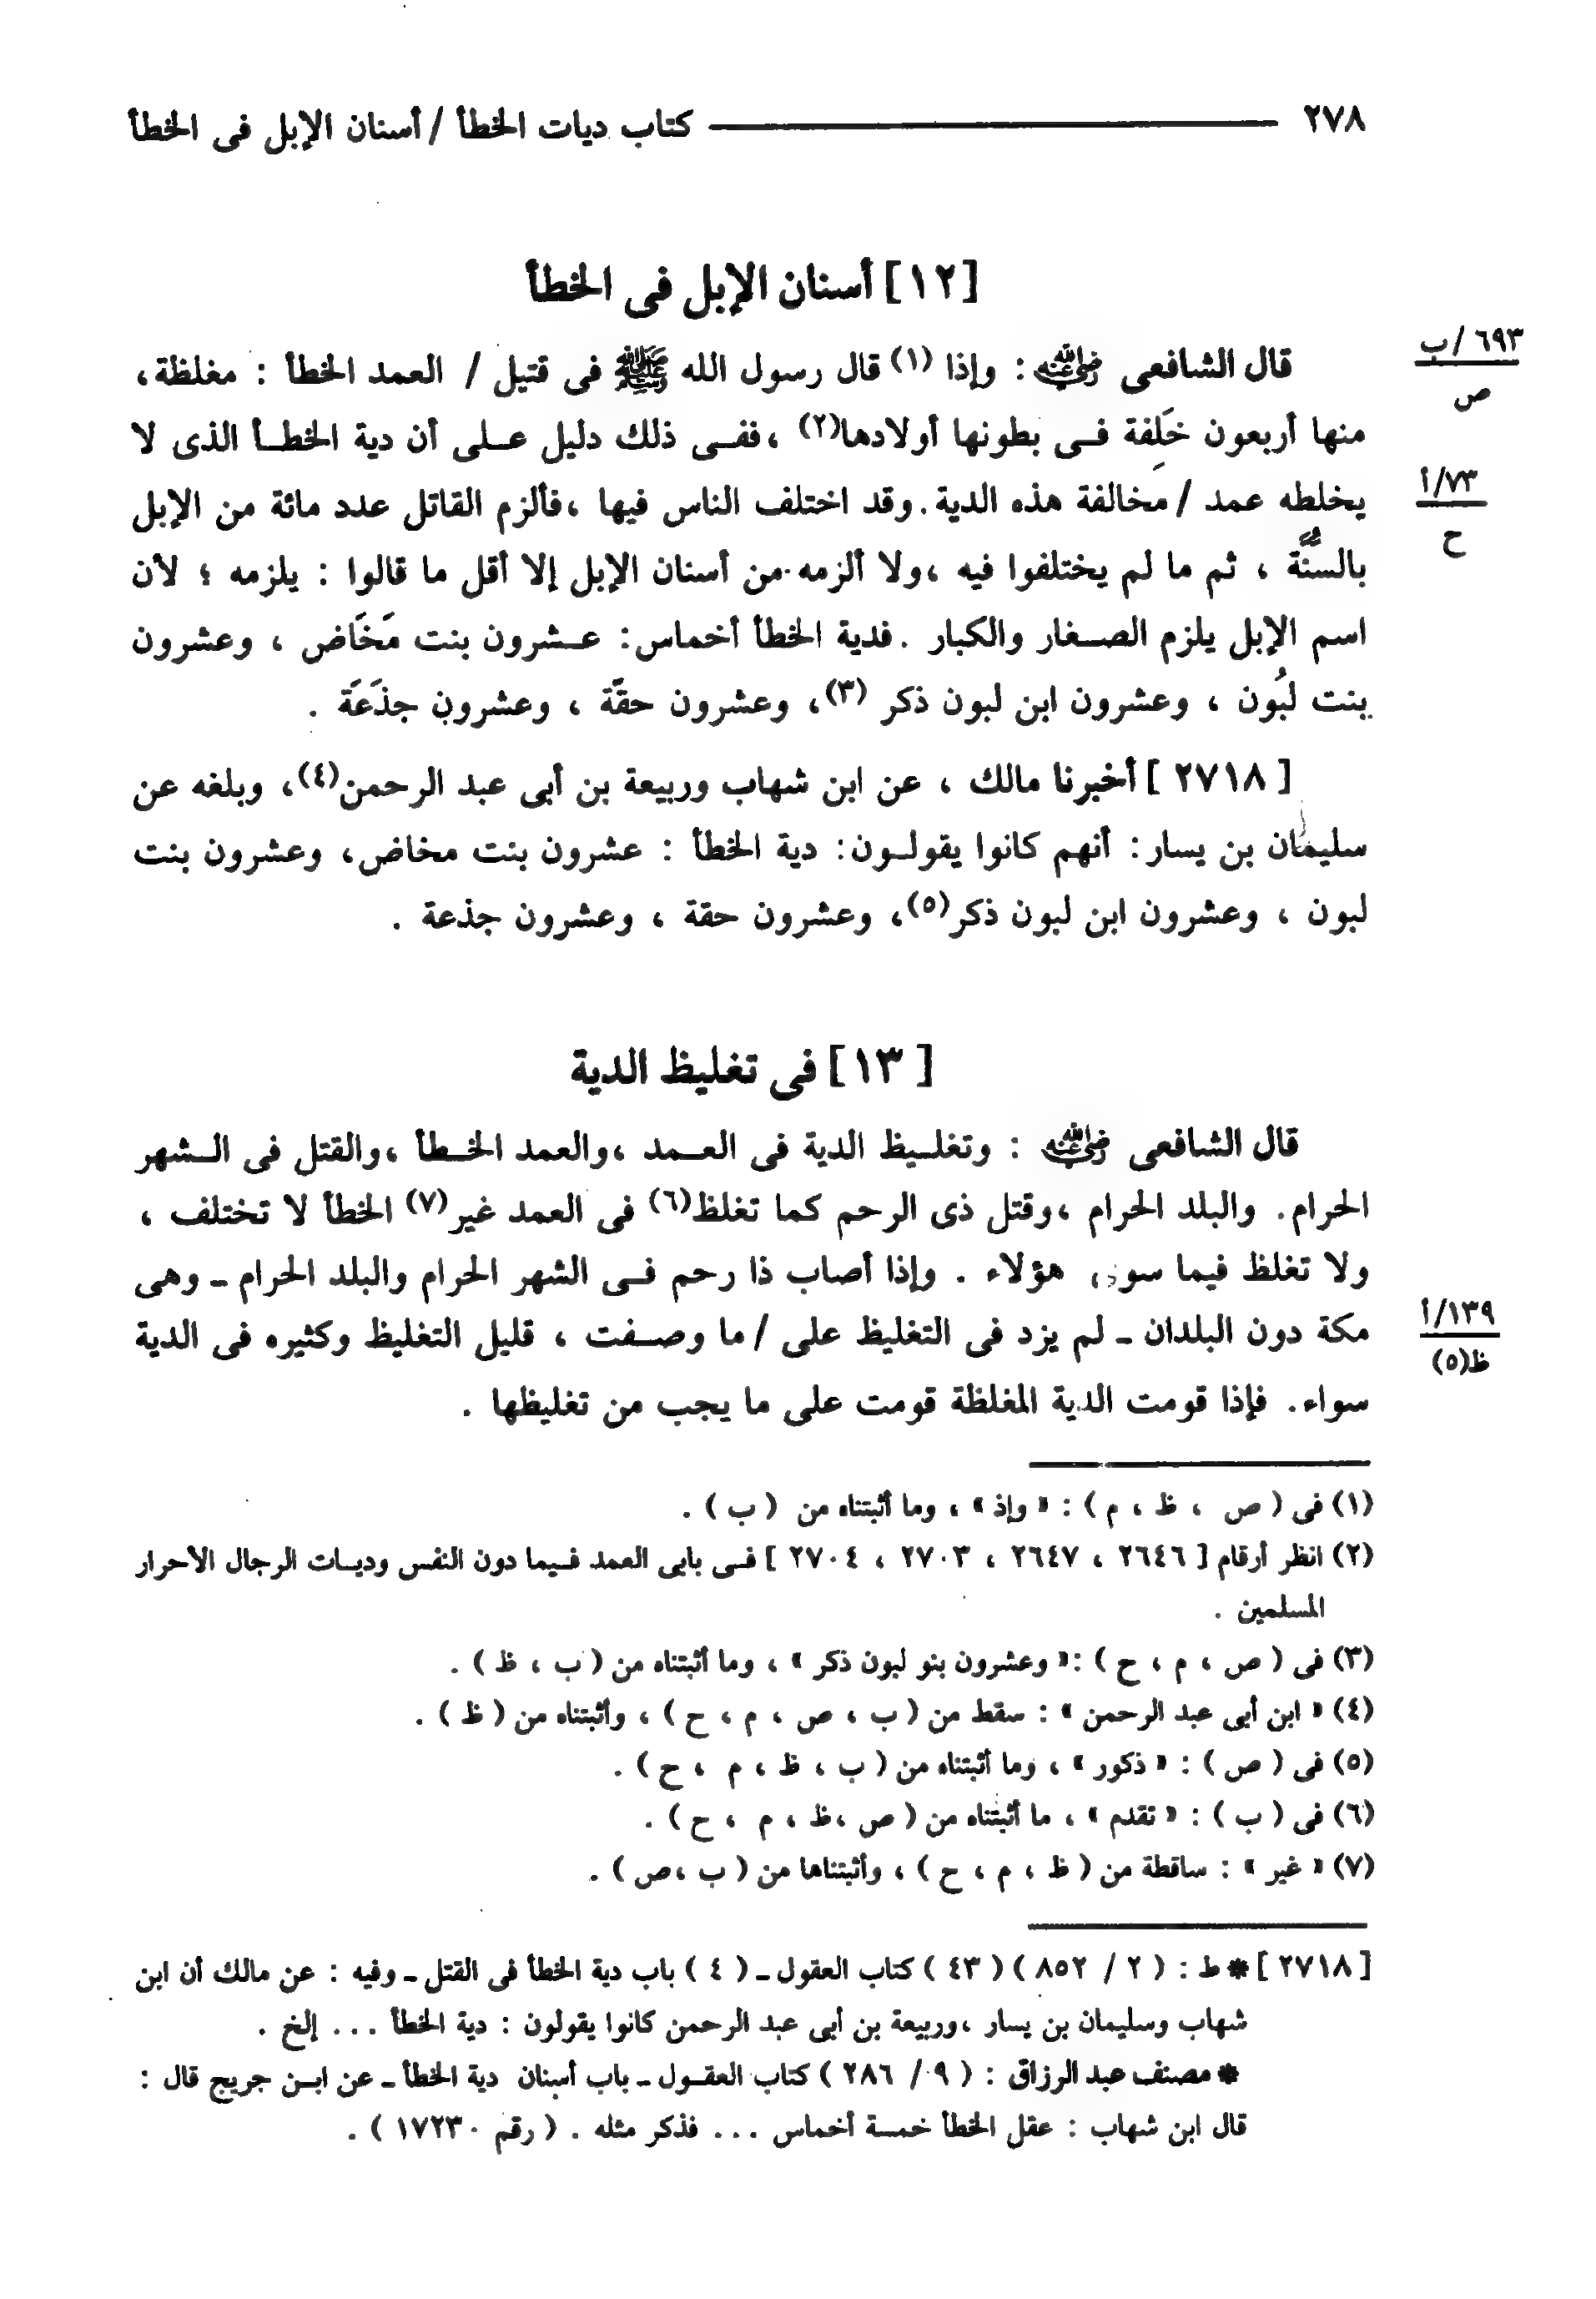 ٢٧٨ ـــــــــ كتاب ديات الخطأ / أسنان الإبل فى الخطأ
[١٢] أسنان الإبل فى الخطأ
قال الشافعى رضي الله عنه : وإذا (١) قال رسول الله ﷺ فى قتيل / العمد الخطأ : مغلظة،
٦٩٣ /ب
ص
منها أربعون خَلِفة فـى بطونها أولادها(٢) ،ففـى ذلك دليل عـلى أن دية الخطـأ الذى لا
يخلطه عمد / مخالفة هذه الدية .وقد اختلف الناس فيها ،فألزم القاتل عدد مائة من الإبل
٧٣/أ
ح
بالسنَّة ، ثم ما لم يختلفوا فيه ،ولا ألزمه من أسنان الإبل إلا أقل ما قالوا : يلزمه ؛ لأن
اسم الإبل يلزم الصـغار والكبار .فدية الخطأ أخماس: عـشرون بنت مَخَاض ، وعشرون
بنت لبُون ، وعشرون ابن لبون ذكر (٣)، وعشرون حقَّة ، وعشرون جذَعَة .
[ ٢٧١٨ ] أخبرنا مالك ، عن ابن شهاب وربيعة بن أبى عبد الرحمن(٤)، وبلغه عن
سليمان بن يسار: أنهم كانوا يقولـون: دية الخطأ : عشرون بنت مخاض، وعشرون بنت
لبون ، وعشرون ابن لبون ذكر(٥)، وعشرون حقة ، وعشرون جذعة .
[ ١٣] فى تغليظ الدية
قال الشافعى رضي الله عنه : وتغلـيظ الدية فى العـمد ،والعمد الخـطأ ،والقتل فى الـشهر
الحرام. والبلد الحرام ،وقتل ذى الرحم كما تغلظ(٦) فى العمد غير(٧) الخطأ لا تختلف ،
ولا تغلظ فيما سوى هؤلاء . وإذا أصاب ذا رحم فـى الشهر الحرام والبلد الحرام ـ وهى
مكة دون البلدان ـ لم يزد فى التغليظ على / ما وصـفت ، قليل التغليظ وكثيره فى الدية
١٣٩/أ
ظ(٥)
سواء. فإذا قومت الدية المغلظة قومت على ما يجب من تغليظها .
(١) فى ( ص ، ظ ، م ) : « وإذ » ، وما أثبتناه من ( ب ) .
(٢) انظر أرقام [ ٢٦٤٦ ، ٢٦٤٧ ، ٢٧٠٣ ، ٢٧٠٤ ] فـى بابى العمد فـيما دون النفس وديـات الرجال الأحرار
المسلمين .
(٣) فى ( ص ، م ، ح ) :« وعشرون بنو لبون ذكر » ، وما أثبتناه من ( ب ، ظ ) .
(٤) « ابن أبى عبد الرحمن » : سقط من ( ب ، ص ، م ، ح ) ، وأثبتناه من ( ظ ) .
(٥) فى ( ص ) : « ذكور » ، وما أثبتناه من ( ب ، ظ ، م ، ح ) .
(٦) فى ( ب ) : « تقدم » ، ما أثبتناه من ( ص ،ظ ، م ، ح ) .
(٧) « غير » : ساقطة من ( ظ ، م ، ح ) ، وأثبتناها من ( ب ،ص ) .
[ ٢٧١٨ ] * ط : ( ٢ / ٨٥٢ ) ( ٤٣ ) كتاب العقول ـ ( ٤ ) باب دية الخطأ فى القتل ـ وفيه : عن مالك أن ابن
شهاب وسليمان بن يسار ،وربيعة بن أبى عبد الرحمن كانوا يقولون : دية الخطأ ... إلخ .
* مصنف عبد الرزاق : ( ٩ / ٢٨٦ ) كتاب العقـول ـ باب أسنان دية الخطأ ـ عن ابـن جريج قال :
قال ابن شهاب : عقل الخطأ خمسة أخماس ... فذكر مثله . ( رقم ١٧٢٣٠ ) .